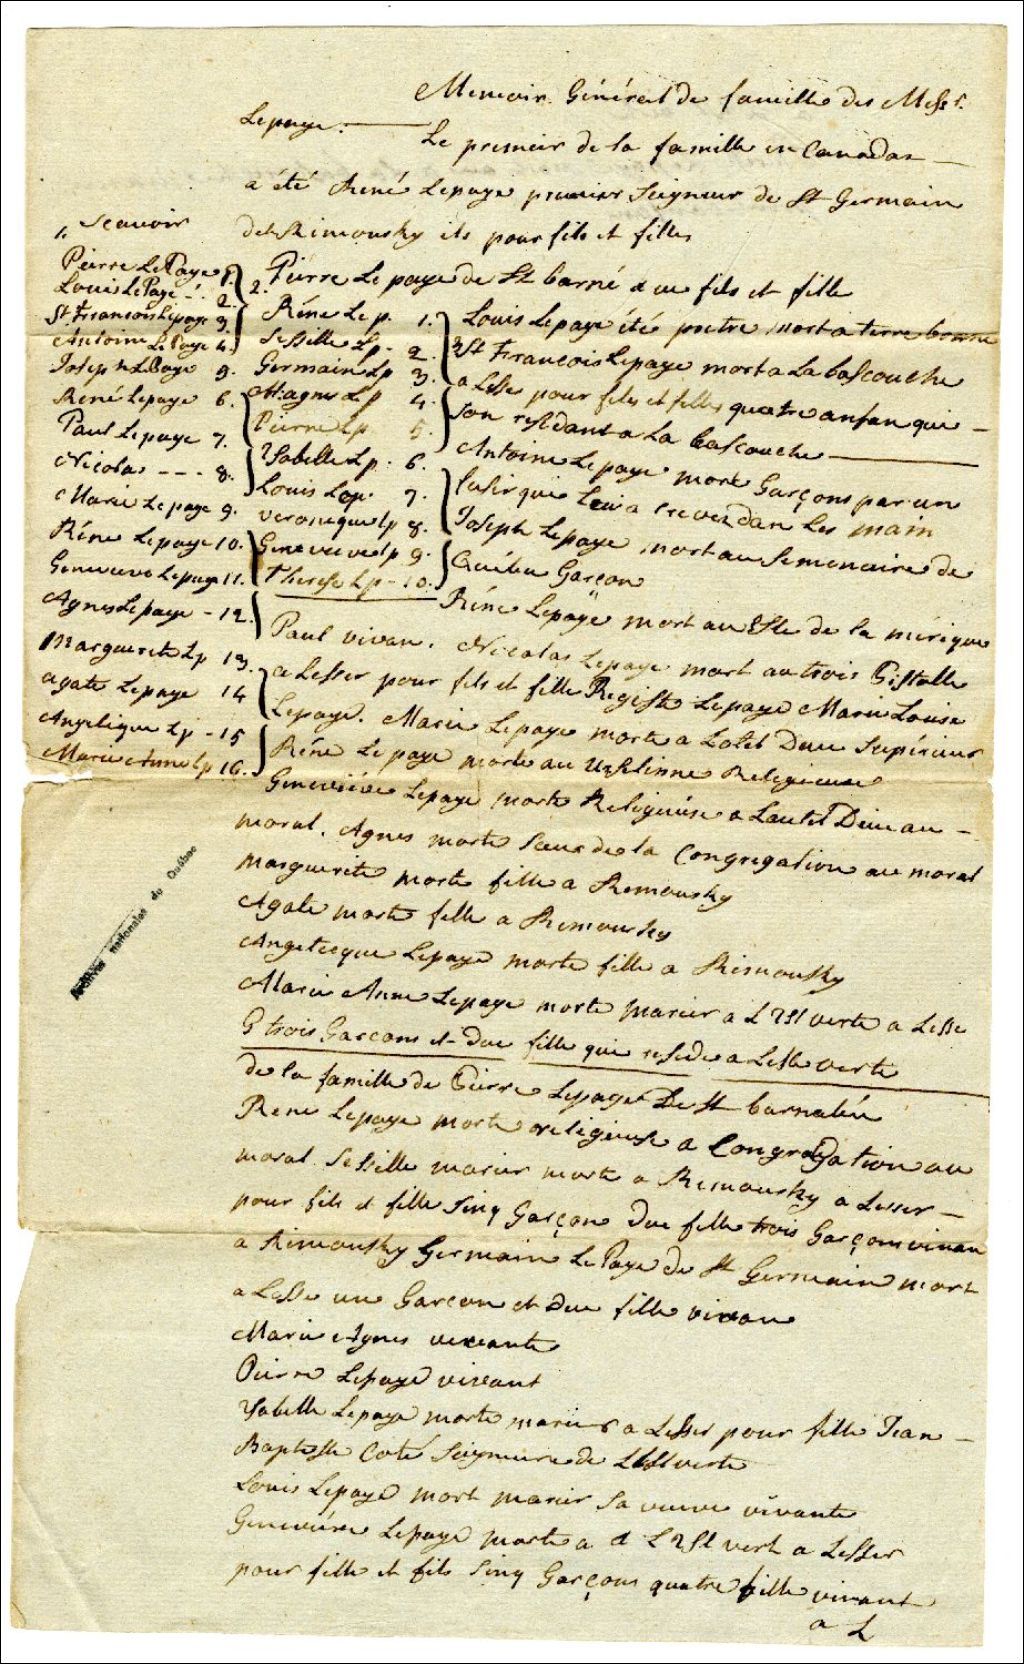 Memoir Général de famille des Mess rs.
Lepage. Le premier de la famille en Canadas
a été René Lepage premier Seigneur de St Germain
de Rimousky ils pour fils et filles
1, Scavoir
Pierre Le Page 1.
Louis Le Page 2.
St fransois Lepage 3.
Antoine Le Page 4.
Joseph LPage 5.
René Lepage 6.
Paul Lepage 7.
Nicolas - - - 8.
Marie Lepage 9.
Réne Lepage 10.
Genevieve Lepage 11.
Agnes Lepage - 12.
Marguerite Lp 13.
agate Lepage 14
Angelique Lp - 15
Marie Anne Lp 16.
2. Pierre Le page de St barné a ue fils et fille
Réne Le p. 1.
Sessille Lp - 2.
Germain Lp 3.
M: agnes Lp 4.
Pierre Lp. 5.
Ysabelle Lp. 6.
Louis Lep. 7.
veronique lp 8.
Genevieve lp 9.
Therese Lp - 10.
Louis Lepage été pretre mort a terre bonne
3 St francois Lepage mort a La bascouche
a Lesse pour fils et filles quatre anfan qui
son résidant a La bascouche
Antoine Lepage mort Garçons par un
fusir qui Leui a crever dan Les main
Joseph Lepage mort au Semenaire de
Québec Garçon
Réne Lepage mort au Isle de la mérique
Paul vivan. Nicolas Lepage mort au trois Pistolle
a Lesser pour fils et fille Registe Lepage Marie Louise
Lepage. Marie Lepage morte a Lotel Dieu Supérieur
Réne Le page morte au Urslinne Religieuse
Geneviéve Lepage morte Religieuse a Lautel Dieu au
moral. Agnes morte Seur de la Congregation au moral
marguerite morte fille a Rimousky
Agate morte fille a Rimousky
Angelicque Lepage morte fille a Rimousky
Marie Anne Lepage morte marier a L Isl verte a Lesse
trois Garcons et due fille qui reside a Lisle verte
de la famille de Pierre Lepage De St barnabée
Rene Lepage morte religieuse a Congregation au
moral. Sessille marier morte a Rimousky a Lesser
pour fils et fille Sinq Garçons due fille trois Garçons vivan
a Rimousky Germain Le Page de St Germain mort
a Lesse un Garcon et due fille vivan
Marie Agnes vivante
Pierre Lepage vivant
Ysabelle Lepage morte marier a Lesser pour fille Jean
Baptiste Coté Seigneure de LIsl verte
Louis Lepage mort marier Sa veuve vivante
Genevieve Lepage morte a L Isl vert a Lesser
pour fille et fils Sinq Garçons quatre fille vivant
a L
Archives nationales du Québec